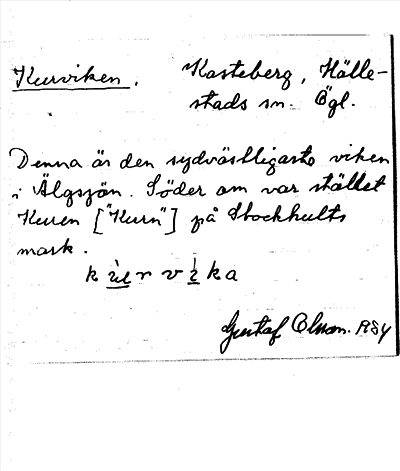 Kurviken. Kasteberg, Hälle-
stads sn. Ögl.
Denna är den sydvästligaste viken
i Älgsjön. Söder om var stället
Kuren ["Kurn"] på Stockhults
mark.
Gustaf